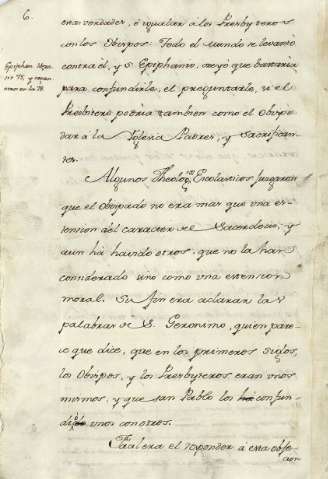 6.
esta verdades, ó igualar á los Presbyteros
con los Obispos. Todo el mundo se levantó
contra él, y S. Epiphanio, creyó que bastaria
para confundirle, el preguntarle, si el
Presbitero podria tambien como el Obispo
dar á la Yglesia Padres, y Sacrifica-
Algunos Theologos Escolasticos juzgaron
que el obispado no era mas que una es-
tension del caracter de Sacerdocio, y
aun ha havido otros, que no la han
considerado sino como una estension
moral. Su fin era aclarar las
palabras de S. Geronimo, quien pare-
ce que dice, que en los primeros siglos,
los Obispos, y los Presbyteros eran unos
mismos, y que San Pablo los confun-
unos con otros.
Facil era el responder á esta obje-
cion